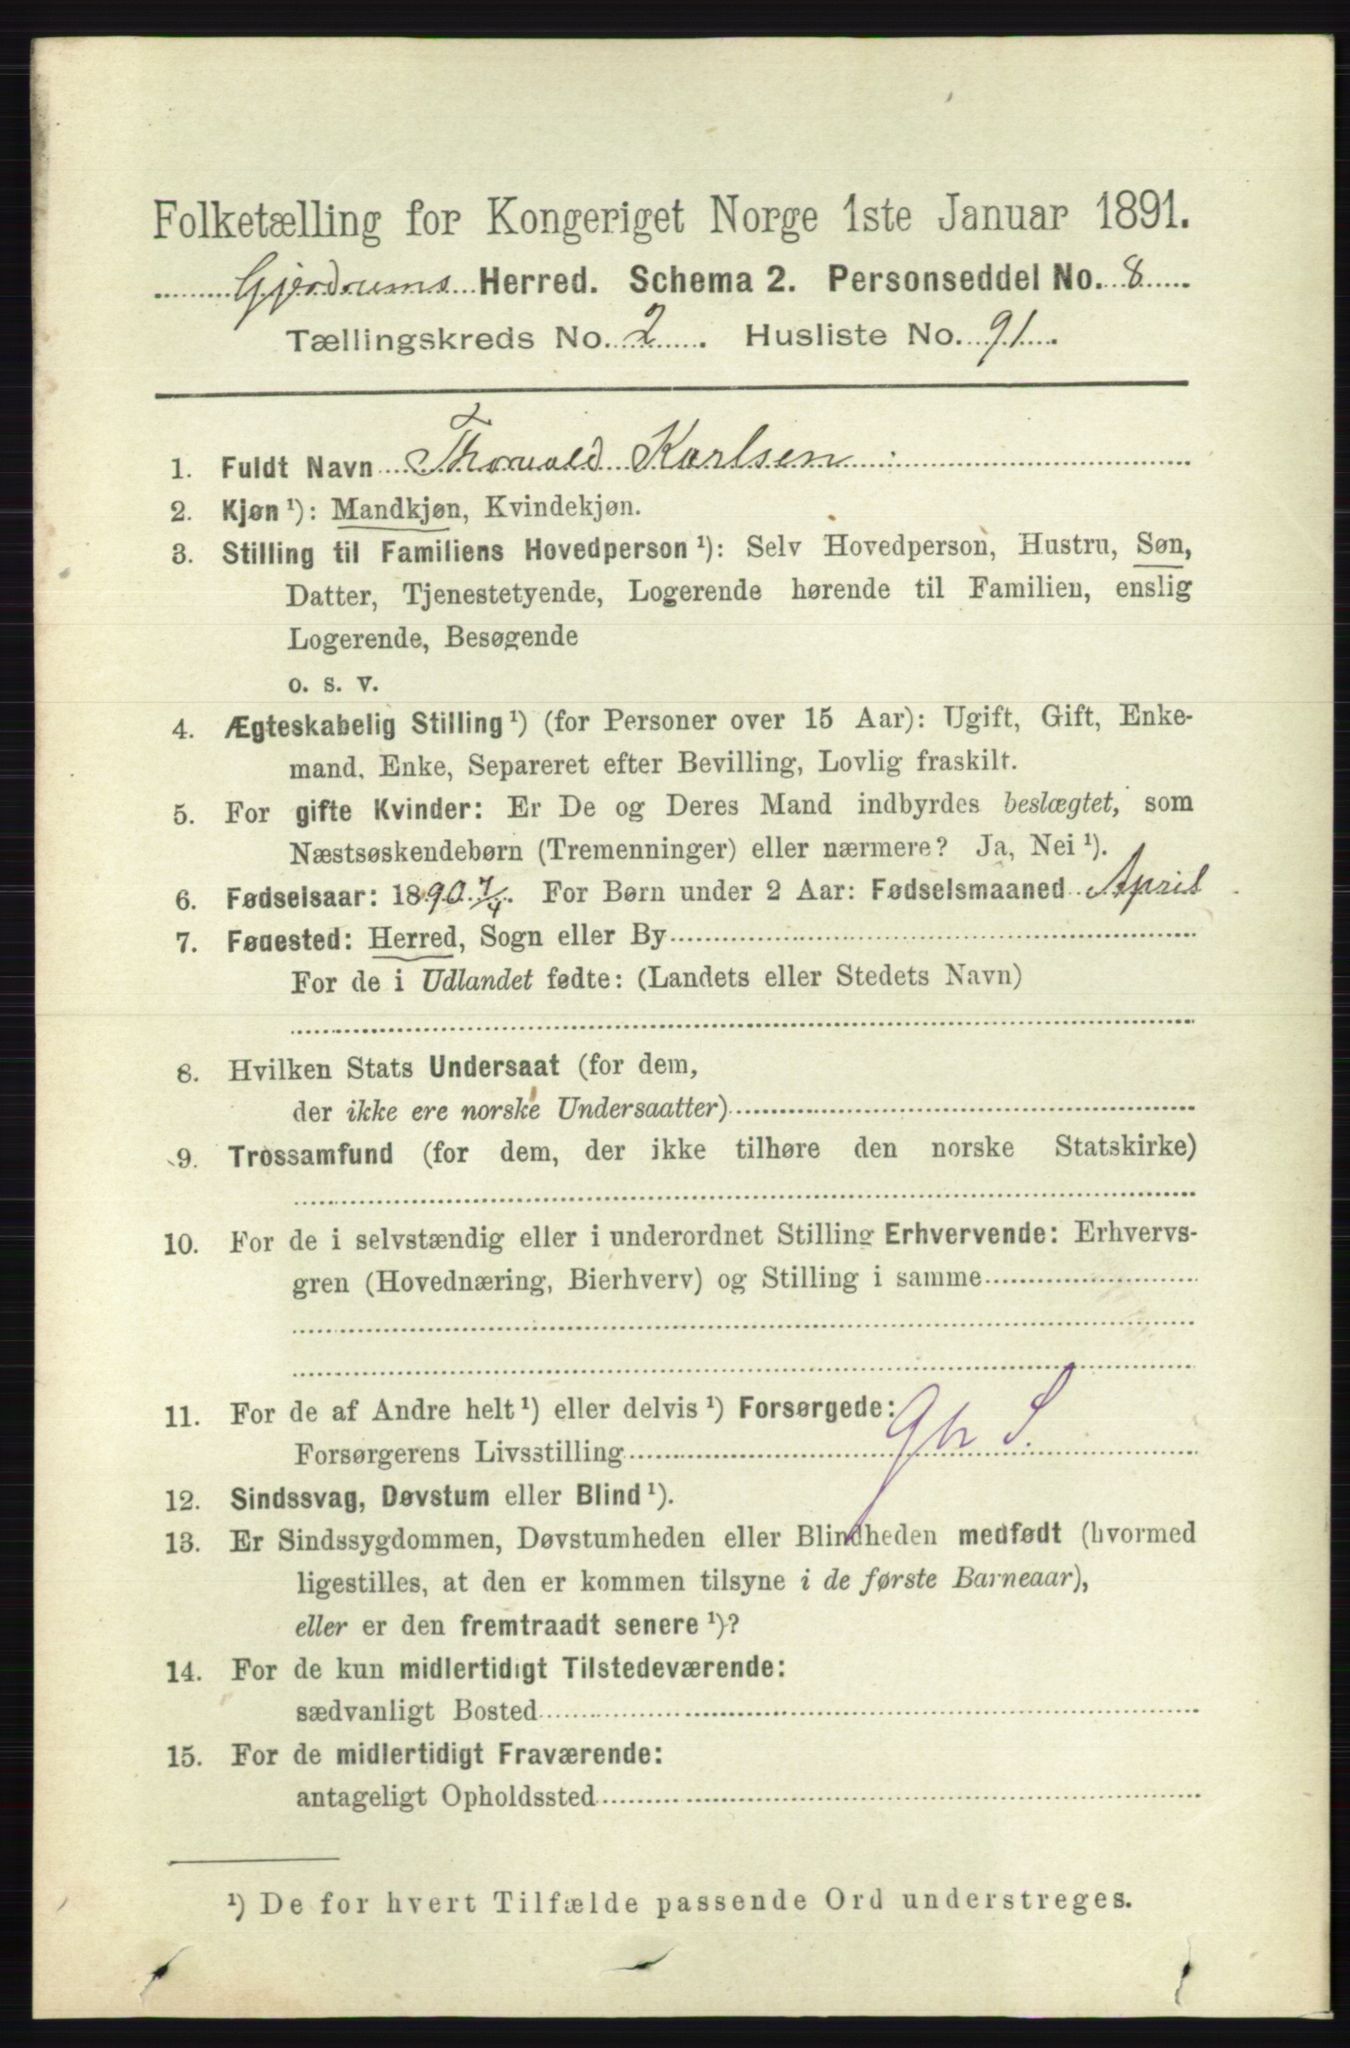 Folketælling for Kongeriget Norge 1ste Januar 1891.
Gjerdrums Herred. Schema 2. Personseddel No. 8
Tællingskreds No. 2. Husliste No. 91.
1. Fuldt Navn Thorvald Karlsen
2. Kjøn ¹): Mandkjøn, Kvindekjøn.
3. Stilling til Familiens Hovedperson ¹): Selv Hovedperson, Hustru, Søn,
Datter, Tjenestetyende, Logerende hørende til Familien, enslig
Logerende, Besøgende
o. s. v.
4. Ægteskabelig Stilling ¹) (for Personer over 15 Aar): Ugift, Gift, Enke-
mand, Enke, Separeret efter Bevilling, Lovlig fraskilt.
5. For gifte Kvinder: Er De og Deres Mand indbyrdes beslægtet, som
Næstsøskendebørn (Tremenninger) eller nærmere? Ja, Nei ¹).
6. Fødselsaar: 1890 7/4. For Børn under 2 Aar: Fødselsmaaned April
7. Fødested: Herred, Sogn eller By
For de i Udlandet fødte: (Landets eller Stedets Navn)
8. Hvilken Stats Undersaat (for dem,
der ikke ere norske Undersaatter)
9. Trossamfund (for dem, der ikke tilhøre den norske Statskirke)
10. For de i selvstændig eller i underordnet Stilling Erhvervende: Erhvervs-
gren (Hovednæring, Bierhverv) og Stilling i samme
11. For de af Andre helt ¹) eller delvis ¹) Forsørgede:
Forsørgerens Livsstilling Gbr S.
12. Sindssvag, Døvstum eller Blind ¹).
13. Er Sindssygdommen, Døvstumheden eller Blindheden medfødt (hvormed
ligestilles, at den er kommen tilsyne i de første Barneaar),
eller er den fremtraadt senere ¹)?
14. For de kun midlertidigt Tilstedeværende:
sædvanligt Bosted
15. For de midlertidigt Fraværende:
antageligt Opholdssted
¹) De for hvert Tilfælde passende Ord understreges.